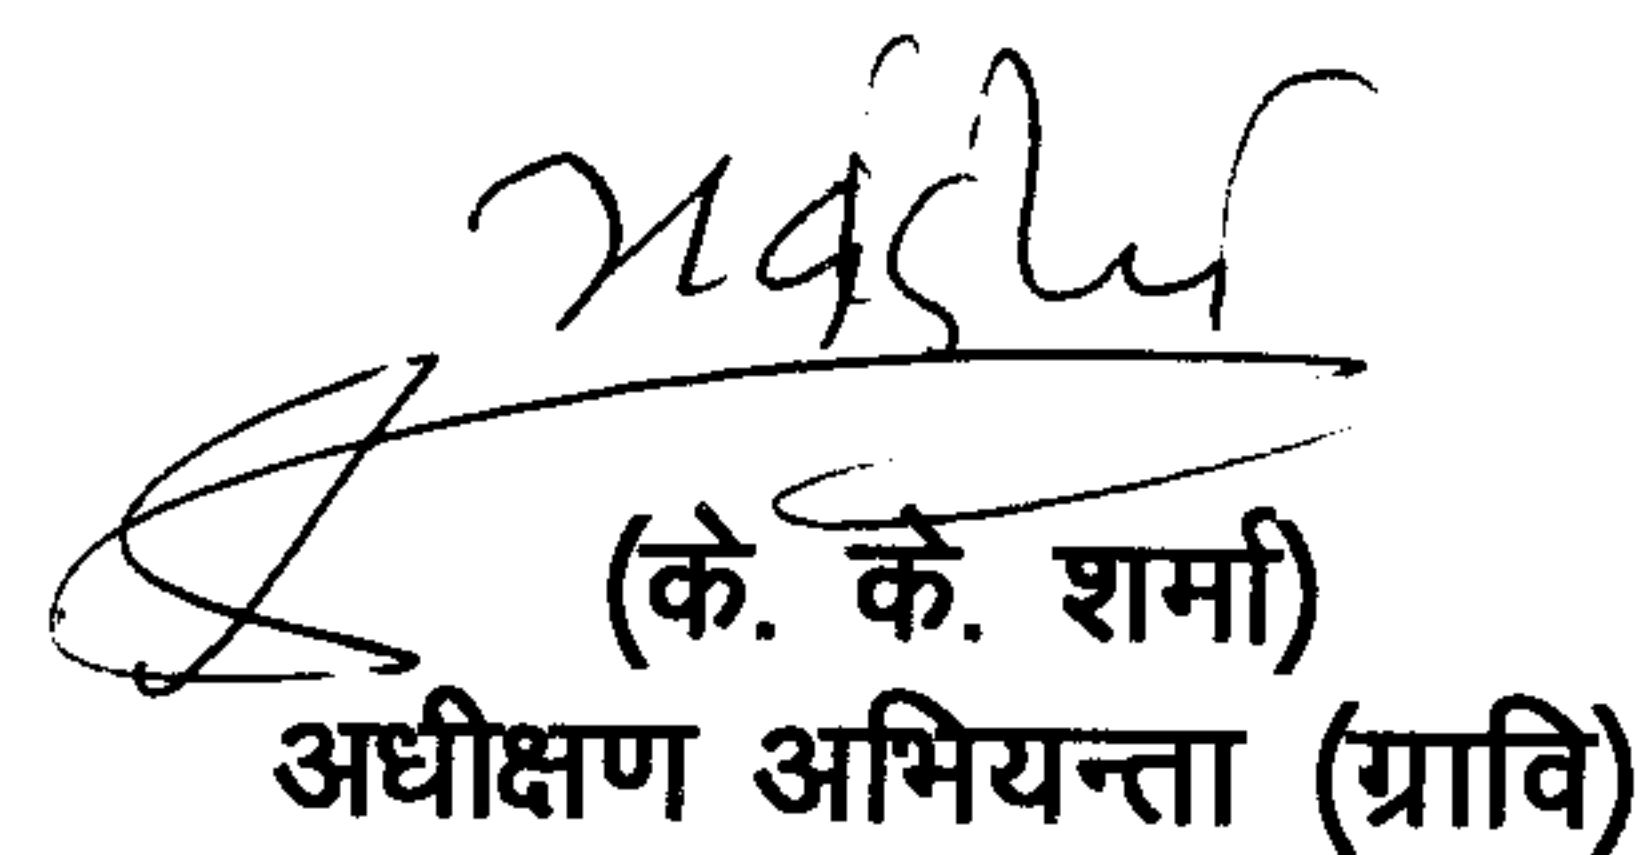 (के. के. शर्मा)
अधीक्षण अभियन्ता (ग्रावि)